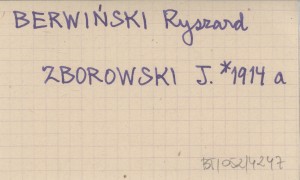 BERWIŃSKI Ryszard
ZBOROWSKI J. *1914 a
BT/052/4247